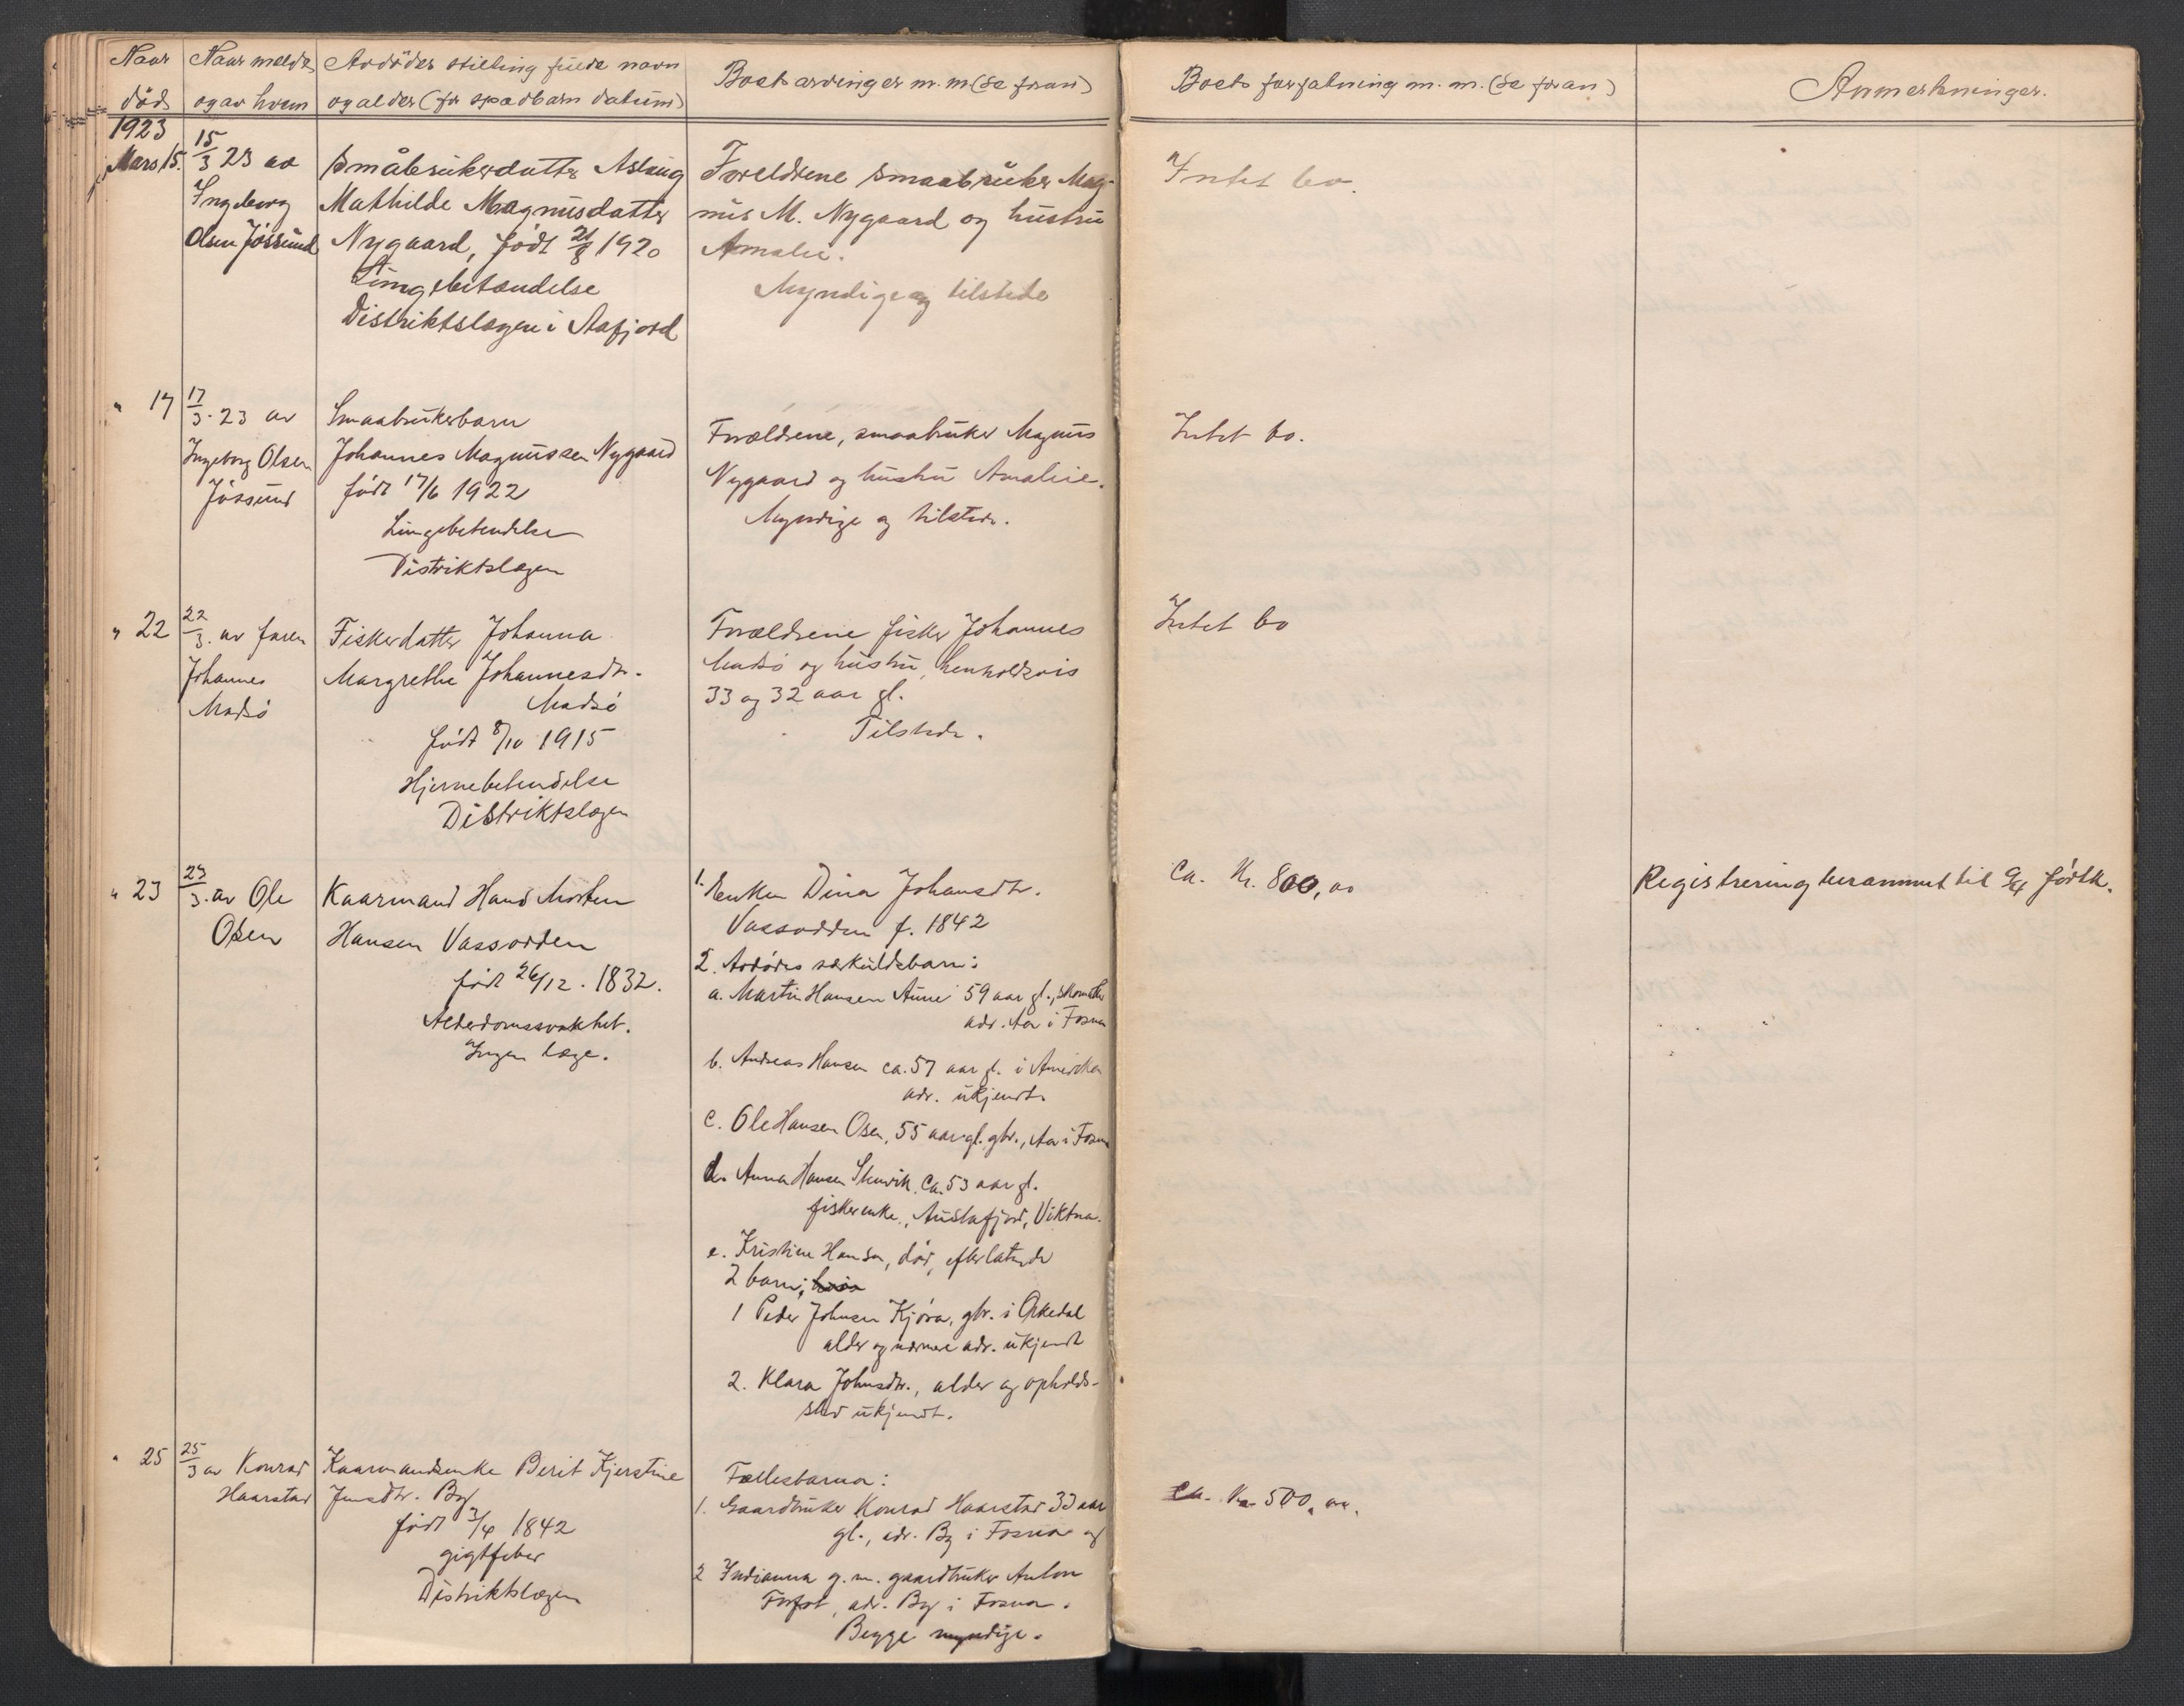 Naar Naar meldt, Avdödes stilling fulde navn Boets arvinger m. m. (se foran) Boets forfatning m. m. (se foran) Anmerkninger.
död og av hvem og alder (for spædbarn datum)
1923
Mars 15. 15/3 23 av Småbrukerdatter Aslaug Foreldrene smaabruker Mag- Intet bo.
Ingeborg Mathilde Magnusdatter nus M. Nygaard og hustru
Olsen Jössund Nygaard, født 21/8 1920 Amalie.
Lungebetændelse Myndige og tilstede
Distriktslægen i Aafjord
" 17 17/3. 23 av Smaabrukerbarn Forældrene, smaabruker Magnus Intet bo.
Ingeborg Olsen Johannes Magnussen Nygaard Nygaard og hustru Amalie.
Jössund født 17/6 1922 Myndige og tilstede.
Lungebetendelse
Distriktslægen
" 22 22/3. av faren Fiskerdatter Johanna Forældrene fisker Johannes Intet bo
Johannes Margrethe Johannesdtr. Madsö og hustru, henholdsvis
Madsö Madsö 33 og 32 aar gl.
født 8/10 1915 Tilstede.
Hjernebetendelse
Distriktslægen
" 23 23/3. av Ole Kaarmand Hans Morten 1. Enken Dina Johansdtr. Ca. Kr. 800,00 Registrering berammet til 9/4 førstk.
Osen Hansen Vassodden Vassodden f. 1842
født 26/12. 1832. 2. Avdødes særkuldsbarn:
Alderdomssvakhet. a. Martin Hansen Aune 59 aar gl., skomaker
Ingen læge. adr. Aa i Fosna
b. Andreas Hansen ca. 57 aar gl. i Amerika
adr. ukjendt.
c. Ole Hansen Osen, 55 aar gl. gbr., Aa i Fosna
d. Anna Hansen ca. 53 aar gl.
fiskerenke, Austafjord, Viktna.
e. Kristine Hansen, död, efterlatende
2 barn; hvis
1 Peder Johnsen Kjøra, gbr. i Orkedal
alder og nærmere adr. ukjendt
2. Klara Johnsdtr., alder og opholds-
sted ukjendt.
" 25 25/3 av Konrad Kaarmandsenke Berit Kjerstine Fællesbarna: Ca. Kr. 500,00.
Haarstad Jensdtr. By 1. Gaardbruker Konrad Haarstad 33 aar
født 3/4 1842 gl., adr. By i Fosna og
gigtfeber 2 Indianna g. m. gaardbruker Anton
Distriktslægen adr. By i Fosna.
Begge myndige.